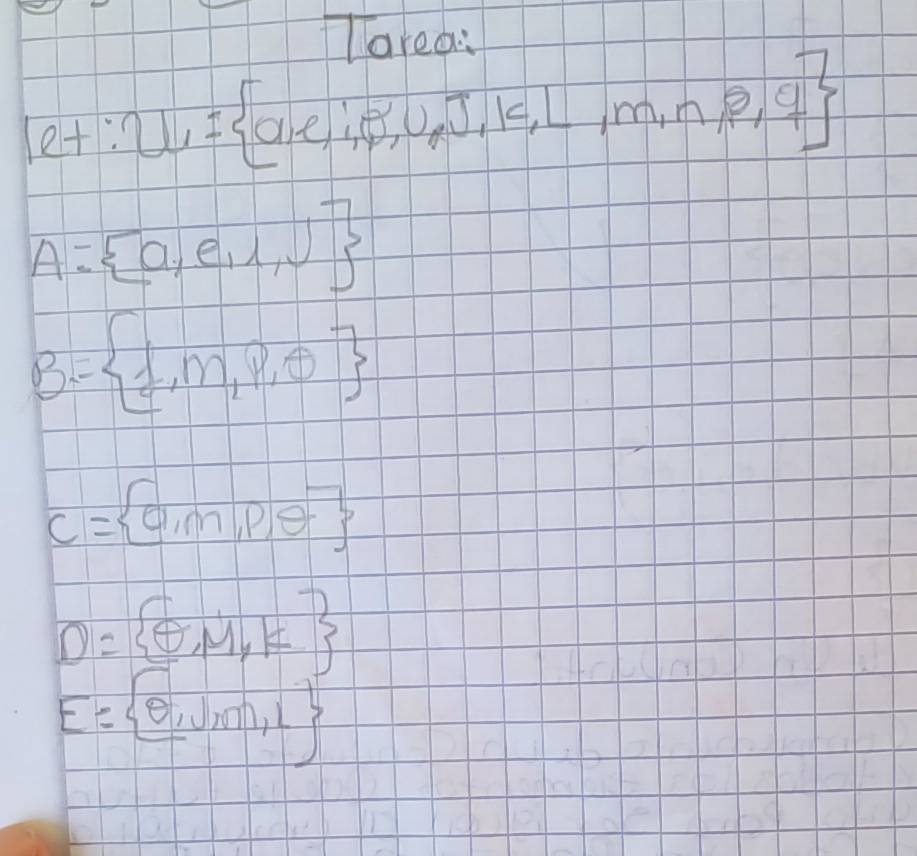 Tarea:
let: U = {a, e, i, θ, U, J, K, L, m, n, p, q}
A = {a, e, i, U}
B = {J, m, p, θ}
C = {q, m, p, θ}
D = {θ, M, K}
E = {θ, U, m, L}